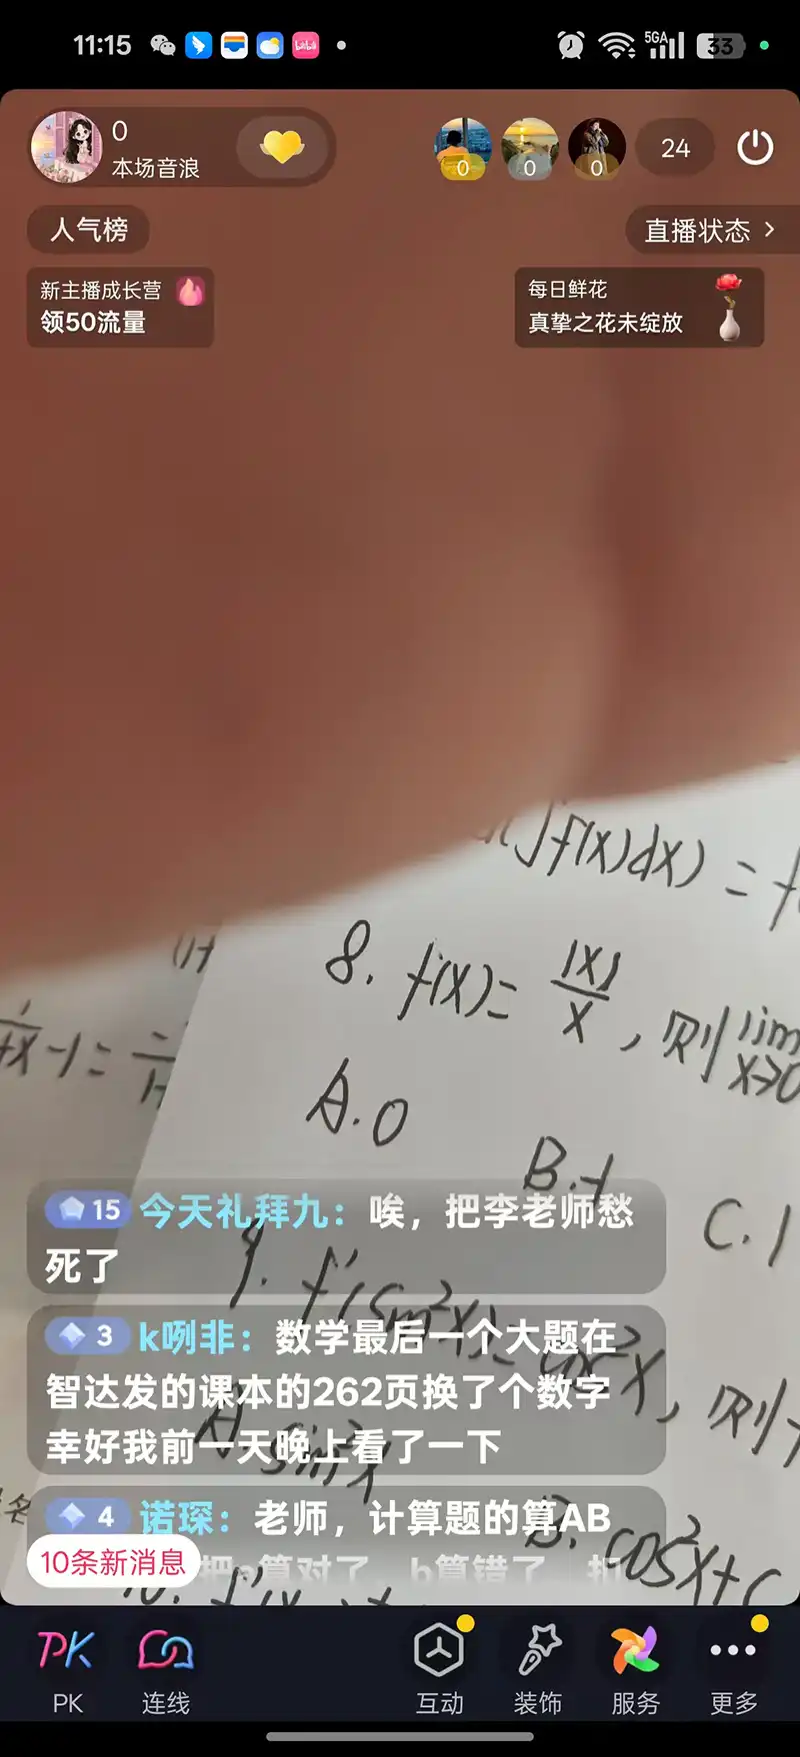 11:15
5GA
33
0
本场音浪
0
0
0
24
人气榜
直播状态
新主播成长营
领50流量
每日鲜花
真挚之花未绽放
∫f(x)dx) = f
8. f(x)= |x|/x , 则 lim x→0
A.0
B.-1
C.1
15 今天礼拜九：唉，把李老师愁
死了
9. f'(sin²x)=cos²x, 则
3 k咧非：数学最后一个大题在
智达发的课本的262页换了个数字
幸好我前一天晚上看了一下
A. sin²x
4 诺琛：老师，计算题的算AB
B. cos²x+C
10条新消息
把a算对了，b算错了，扣
PK
PK
连线
互动
装饰
服务
更多